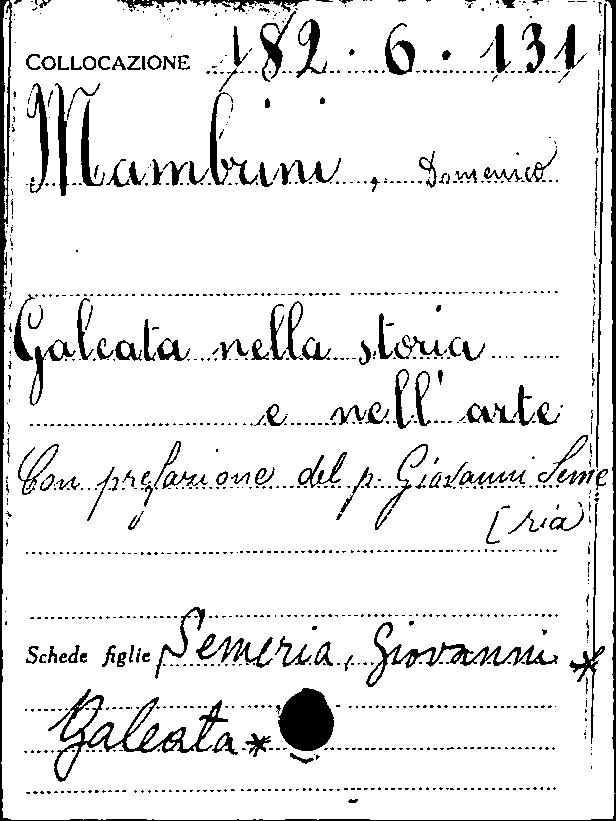 COLLOCAZIONE 182 · 6 · 131
Mambrini, Domenico
Galeata nella storia
e nell' arte
Con prefazione del p. Giovanni Seme
[ria
Schede figlie Semeria, Giovanni *
Galeata *